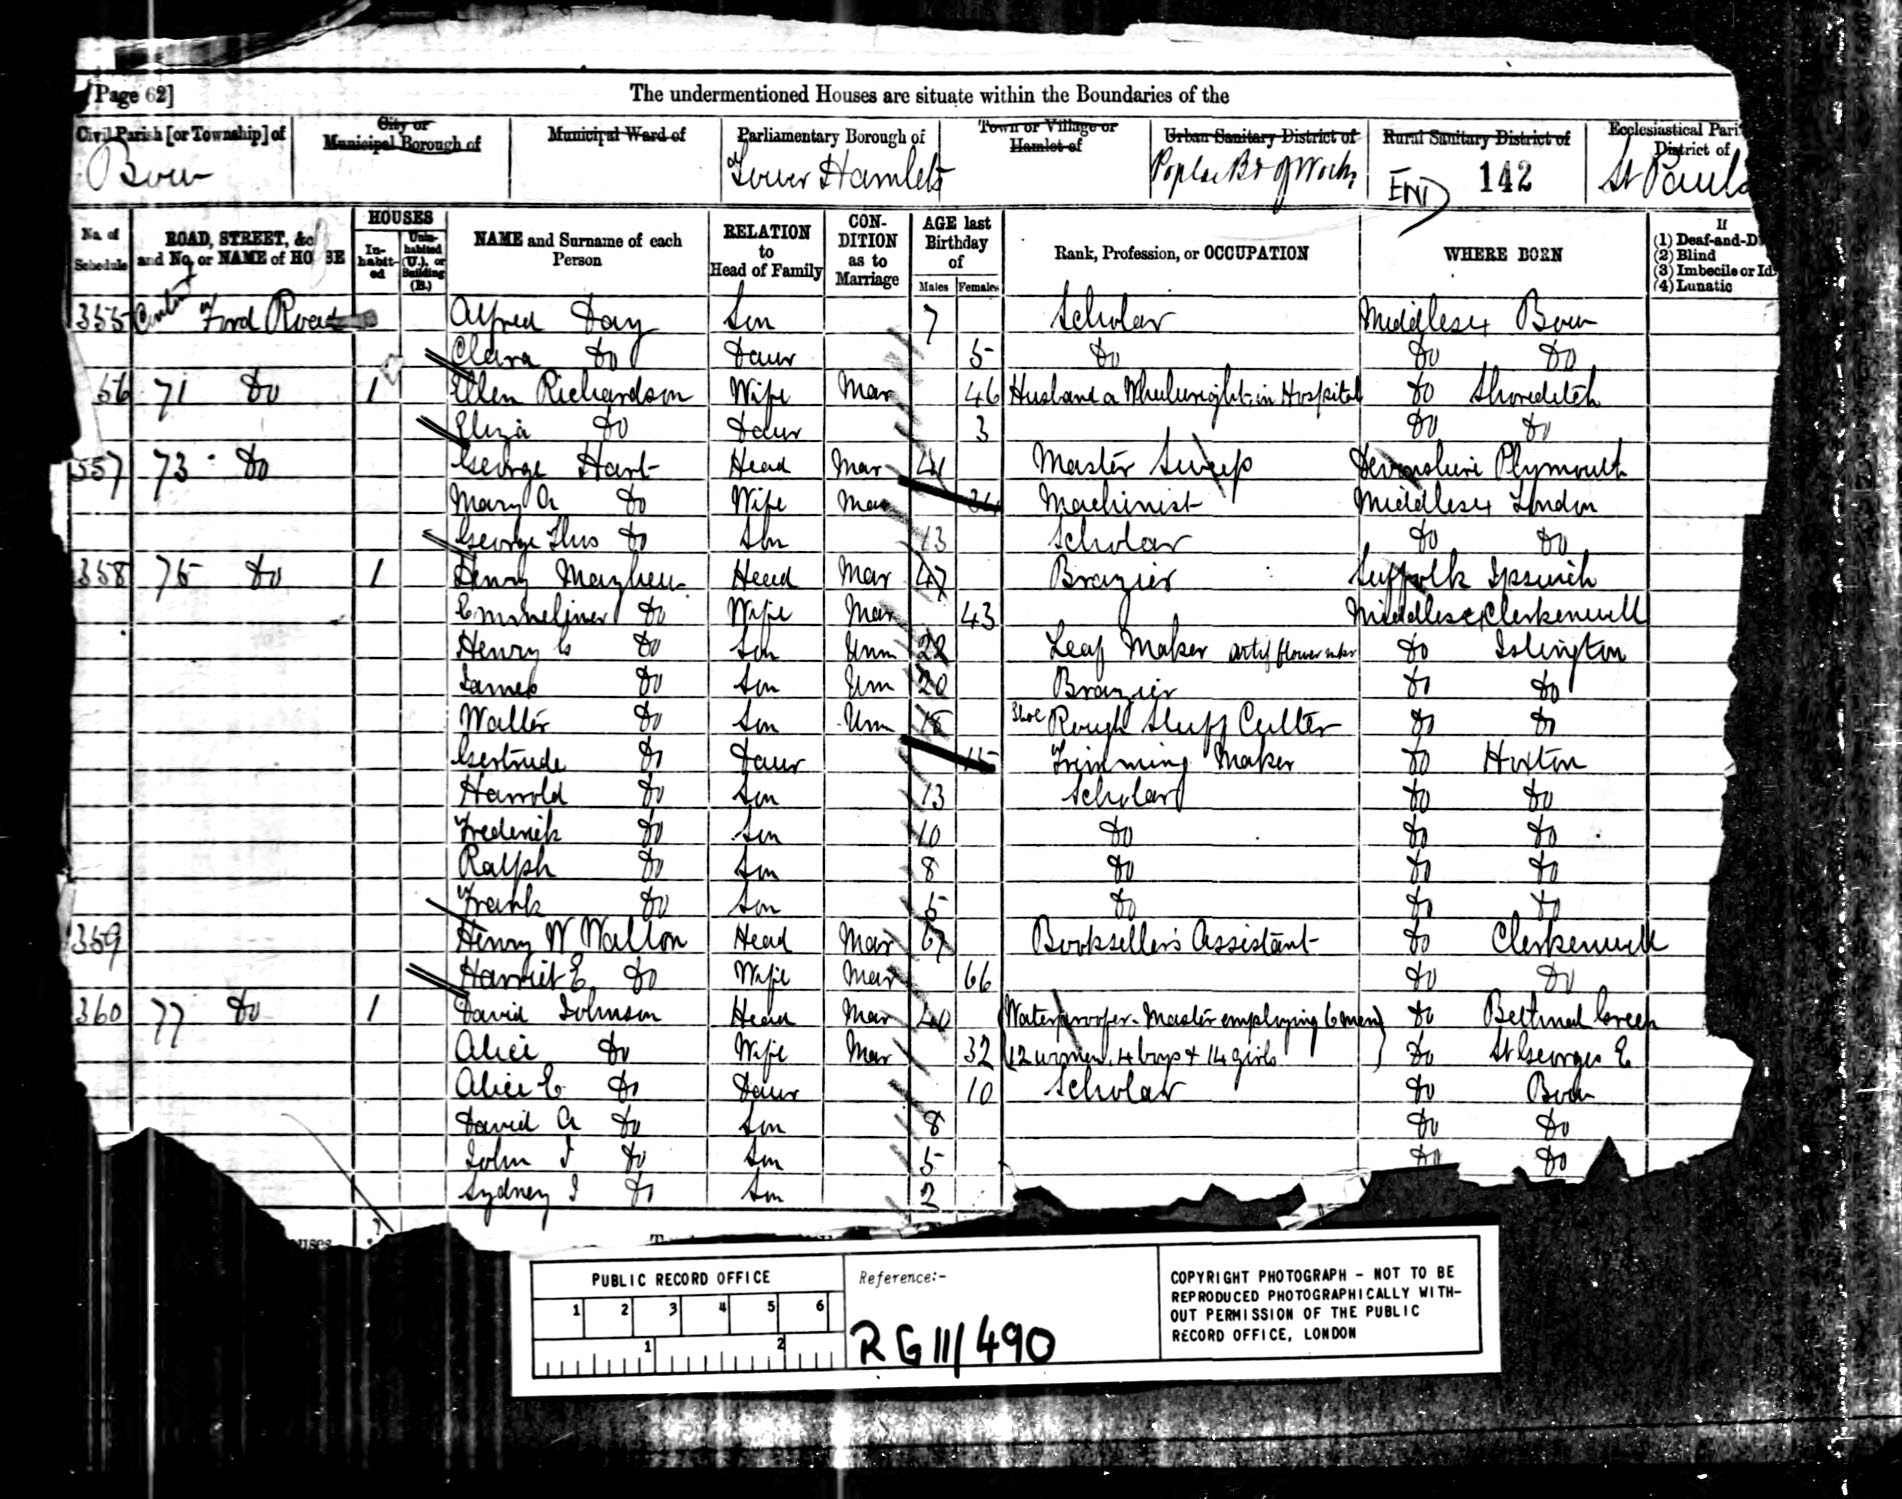 [Page 62]
The undermentioned Houses are situate within the Boundaries of the
Civil Parish [or Township] of
City or Municipal Borough of
Municipal Ward of
Parliamentary Borough of
Town or Village or Hamlet of
Urban Sanitary District of
Rural Sanitary District of
Ecclesiastical Pari
District of
Bow
Tower Hamlets
Poplar Bd of Works
END 142
St Pauls
No. of Schedule
ROAD, STREET, &c and No. or NAME of HO SE
HOUSES
In-habit-ed
Unin-habited (U.), or Building (B.)
NAME and Surname of each Person
RELATION to Head of Family
CON-DITION as to Marriage
AGE last Birthday of
Males Females
Rank, Profession, or OCCUPATION
WHERE BORN
If
(1) Deaf-and-D
(2) Blind
(3) Imbecile or Id
(4) Lunatic
355 Ford Road Alfred Day Son 7 Scholar Middlesex Bow
Clara Do Daur 5 Do Do Do
56 71 Do 1 Ellen Richardson Wife Mar 46 Husband a Wheelwright in Hospital Do Shoreditch
Eliza Do Daur 3 Do Do
357 73 Do George Hart Head Mar 41 Master Sweep Devonshire Plymouth
Mary A Do Wife Mar Machinist Middlesex London
George Thos Do Son 13 Scholar Do Do
358 75 Do 1 Henry Mayhew Head Mar 47 Brazier Suffolk Ipswich
Do Wife Mar 43 Middlesex Clerkenwell
Henry Do Son Unm 22 Leaf Maker artif flower mkr Do Islington
James Do Son Unm 20 Brazier Do Do
Walter Do Son Unm 18 Shoe Rough Stuff Cutter Do Do
Gertrude Do Daur 15 Trimming Maker Do Hoxton
Harrold Do Son 13 Scholar Do Do
Frederick Do Son 10 Do Do Do
Ralph Do Son 8 Do Do Do
Frank Do Son 5 Do Do Do
359 Henry W Walton Head Mar 67 Booksellers Assistant Do Clerkenwell
Harriet E Do Wife Mar 66 Do Do
360 77 Do 1 David Johnson Head Mar 40 Waterproofer - Master employing 6 men Do Bethnal Green
Alice Do Wife Mar 32 12 women, 4 boys & 14 girls Do St Georges E
Alice E Do Daur 10 Scholar Do Bow
David A Do Son 8 Do Do
John J Do Son 5 Do Do
Sydney J Do Son 2
uses
PUBLIC RECORD OFFICE
1 2 3 4 5 6
1 2
Reference:-
RG 11/490
COPYRIGHT PHOTOGRAPH - NOT TO BE
REPRODUCED PHOTOGRAPHICALLY WITH-
OUT PERMISSION OF THE PUBLIC
RECORD OFFICE, LONDON